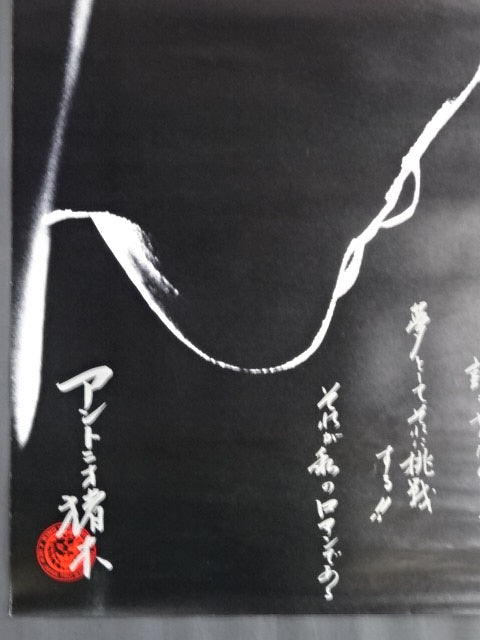 夢として、それに挑戦
する!!
それが私のロマンである
アントニオ猪木